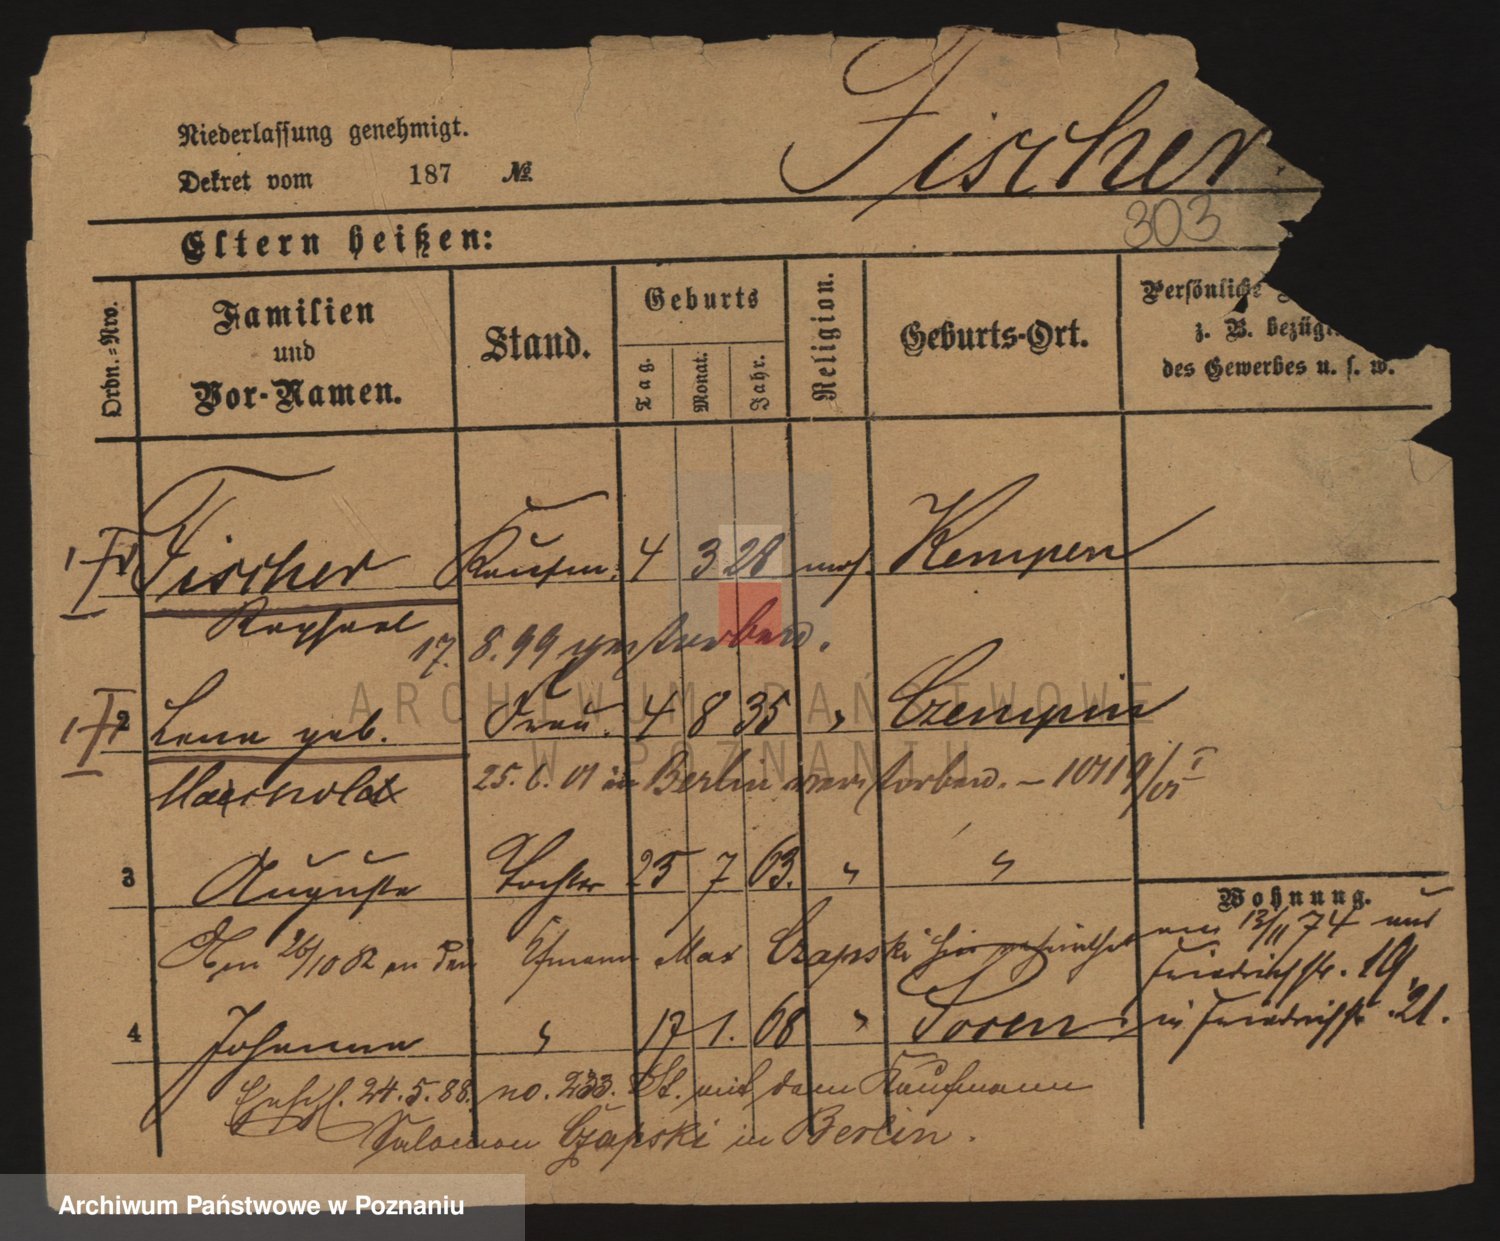 Fischer
Niederlassung genehmigt.
Dekret vom 187 №
303
Eltern heißen:
Ordn.=Nro.
Familien und Vor-Namen.
Stand.
Geburts
Tag.
Monat.
Jahr.
Religion.
Geburts-Ort.
Persönliche
z. B. bezügl.
des Gewerbes u. s. w.
1 Fischer Kaufm. 4 3 28 mos. Kempen
Raphael
17. 8. 99 verstorben.
2 Lena geb. Frau. 4 8 35 " Czempin
25. 6. 01 in Berlin verstorben. –
3 Auguste Tochter 25 7 63. " "
Wohnung.
Am 26/10 82 an den Kfmann Max Czapski hier geheirathet
am 13/11 74 aus
Friedrichstr. 19,
4 Johanna " 17 1. 68 " Posen
in Friedrichstr. 21.
Ehschl. 24. 5. 88. no. 233. St. mit dem Kaufmann
Salomon Czapski in Berlin.
ARCHIWUM PAŃSTWOWE
W POZNANIU
Archiwum Państwowe w Poznaniu